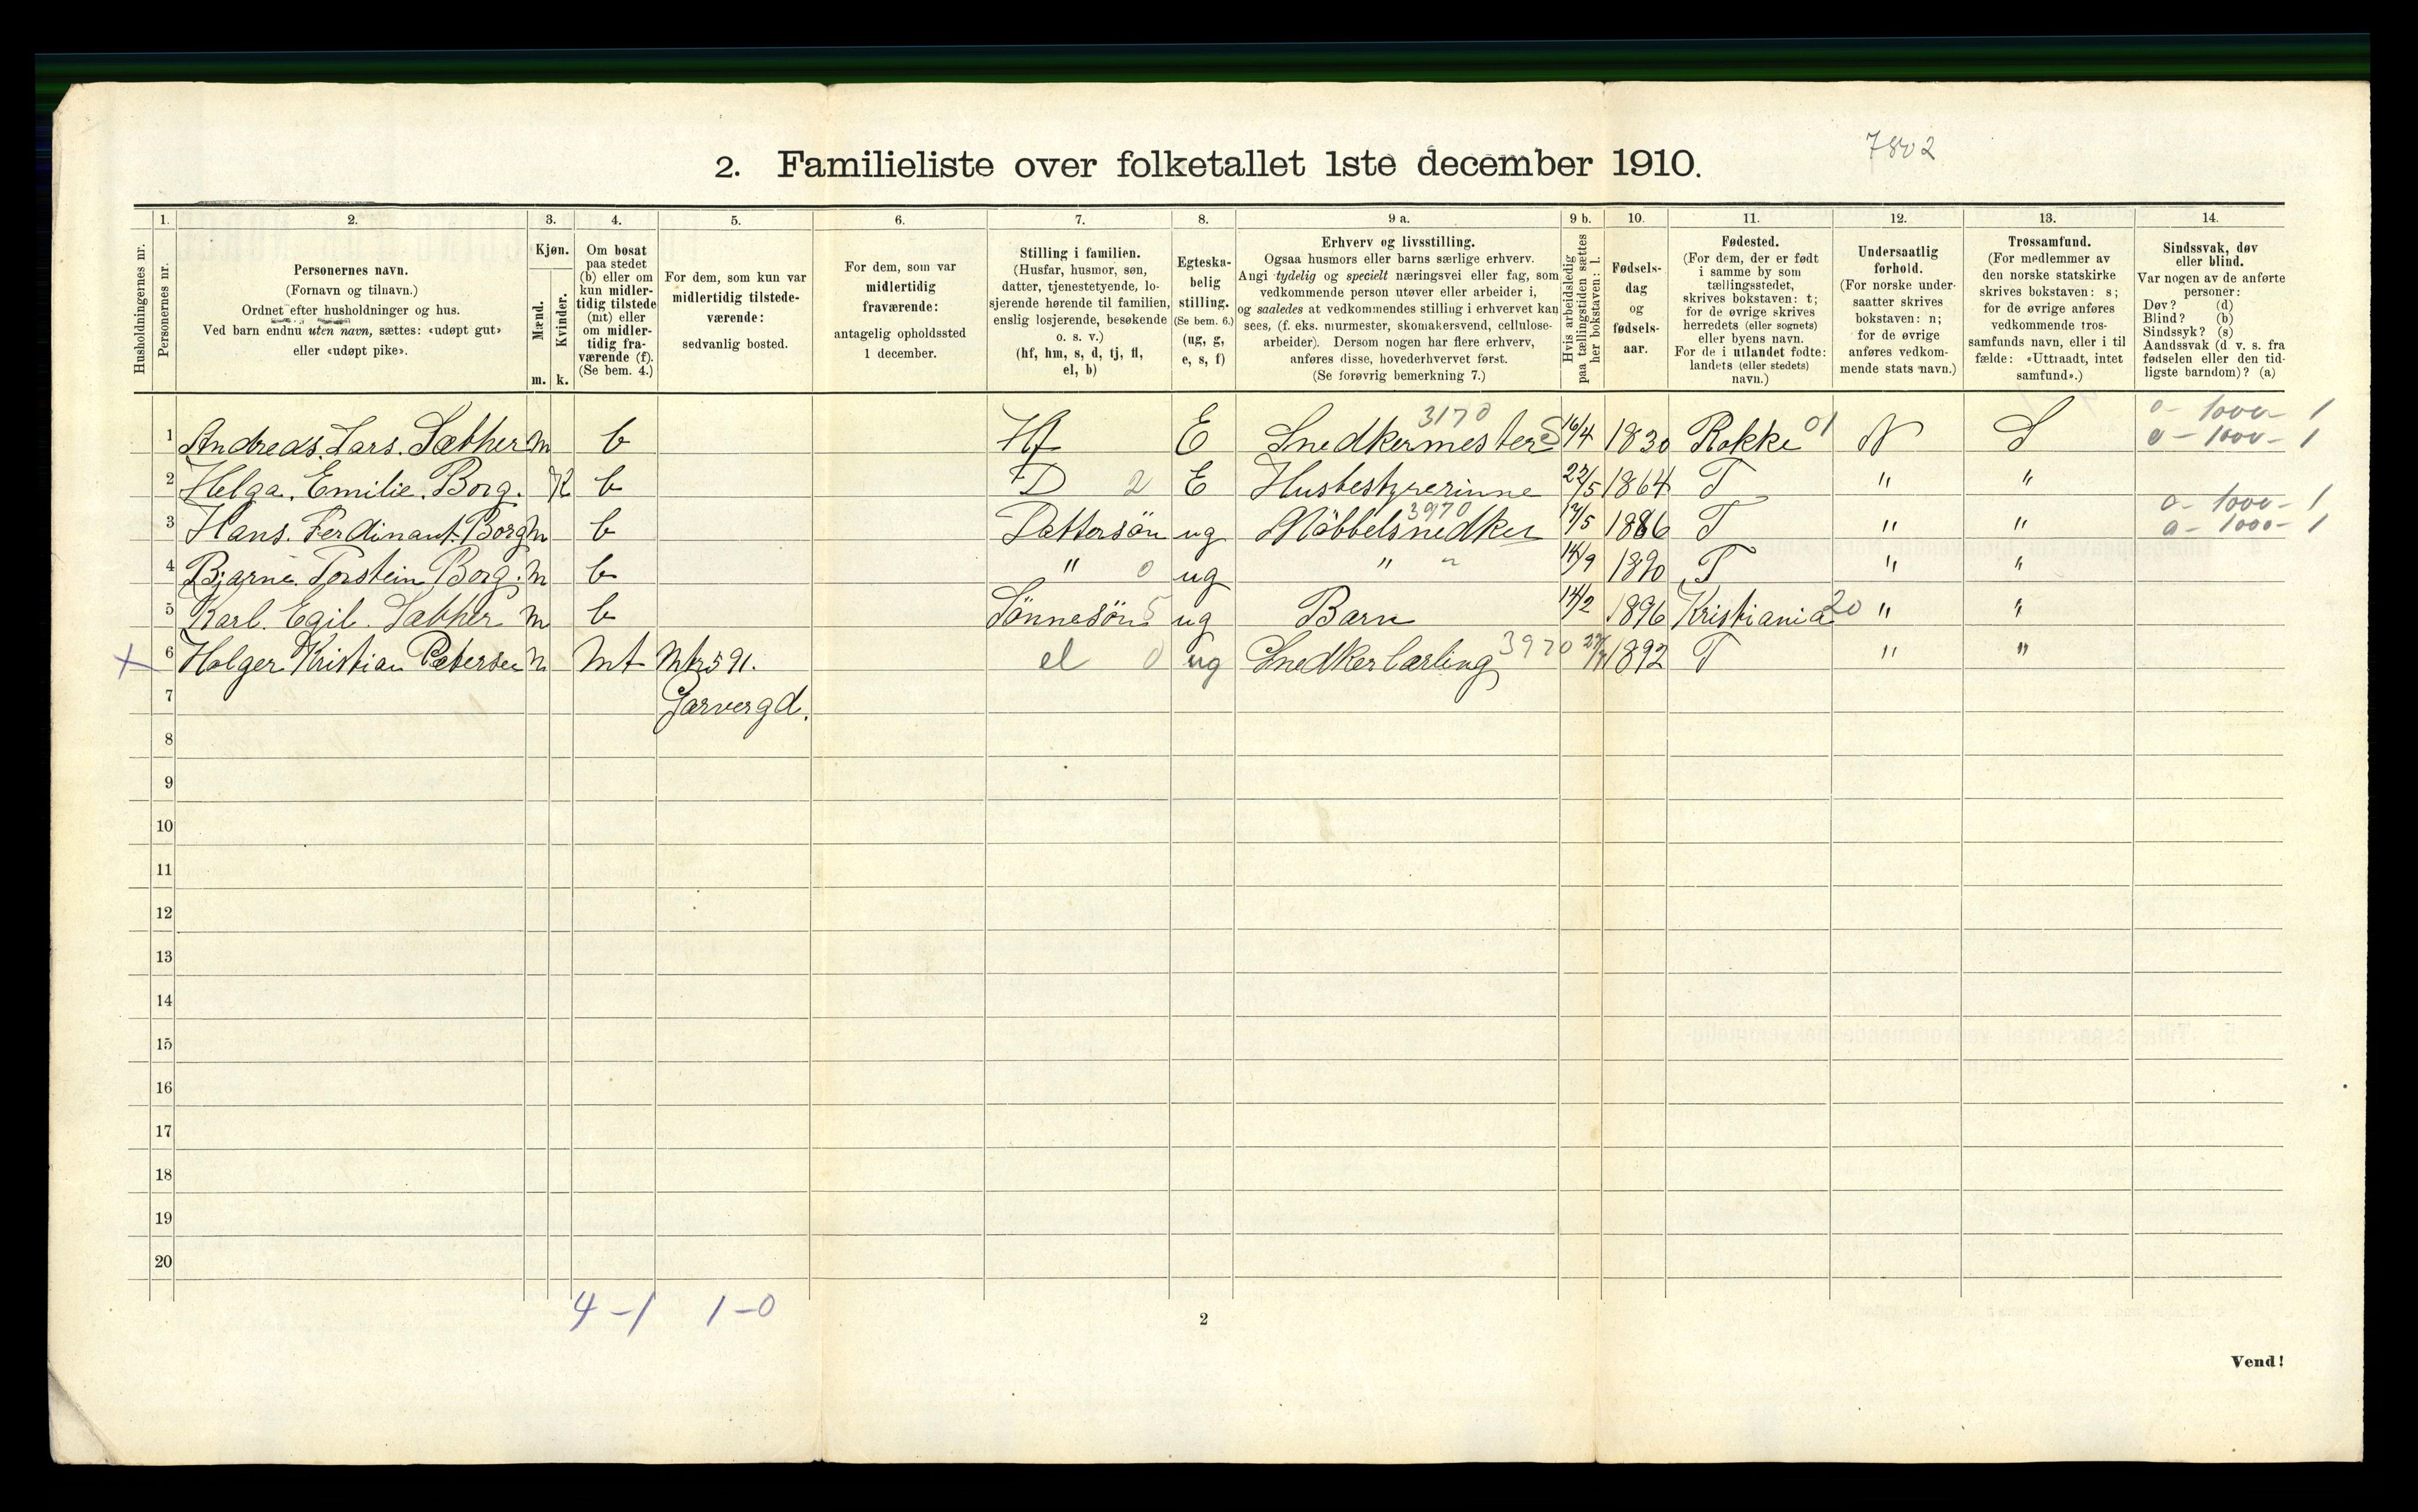 7802
2. Familieliste over folketallet 1ste december 1910.
1. 2. 3. 4. 5. 6. 7. 8. 9 a. 9 b. 10. 11. 12. 13. 14.
Husholdningernes nr.
Personernes nr.
Personernes navn.
(Fornavn og tilnavn.)
Ordnet efter husholdninger og hus.
Ved barn endnu uten navn, sættes: «udøpt gut»
eller «udøpt pike».
Kjøn.
Mænd.
Kvinder.
m. k.
Om bosat
paa stedet
(b) eller om
kun midler-
tidig tilstede
(mt) eller
om midler-
tidig fra-
værende (f).
(Se bem. 4.)
For dem, som kun var
midlertidig tilstede-
værende:
sedvanlig bosted.
For dem, som var
midlertidig
fraværende:
antagelig opholdssted
1 december.
Stilling i familien.
(Husfar, husmor, søn,
datter, tjenestetyende, lo-
sjerende hørende til familien,
enslig losjerende, besøkende
o. s. v.)
(hf, hm, s, d, tj, fl,
el, b)
Egteska-
belig
stilling.
(Se bem. 6.)
(ug, g,
e, s, f)
Erhverv og livsstilling.
Ogsaa husmors eller barns særlige erhverv.
Angi tydelig og specielt næringsvei eller fag, som
vedkommende person utøver eller arbeider i,
og saaledes at vedkommendes stilling i erhvervet kan
sees, (f. eks. murmester, skomakersvend, cellulose-
arbeider). Dersom nogen har flere erhverv,
anføres disse, hovederhvervet først.
(Se forøvrig bemerkning 7.)
Hvis arbeidsledig
paa tællingstiden sættes
her bokstaven: l.
Fødsels-
dag
og
fødsels-
aar.
Fødested.
(For dem, der er født
i samme by som
tællingsstedet,
skrives bokstaven: t;
for de øvrige skrives
herredets (eller sognets)
eller byens navn.
For de i utlandet fødte:
landets (eller stedets)
navn.)
Undersaatlig
forhold.
(For norske under-
saatter skrives
bokstaven: n;
for de øvrige
anføres vedkom-
mende stats navn.)
Trossamfund.
(For medlemmer av
den norske statskirke
skrives bokstaven: s;
for de øvrige anføres
vedkommende tros-
samfunds navn, eller i til
fælde: «Uttraadt, intet
samfund».)
Sindssvak, døv
eller blind.
Var nogen av de anførte
personer:
Døv? (d)
Blind? (b)
Sindssyk? (s)
Aandssvak (d. v. s. fra
fødselen eller den tid-
ligste barndom)? (a)
3170 0 - 1000 - 1
1 Andreas. Lars. Sæther m b Hf E Snedkermester S 16/4 1830 Rokke 01 N S 0 - 1000 - 1
2 Helga. Emilie. Borg. K b D 2 E Husbestyrerinne 22/5 1864 T " "
3970 0 - 1000 - 1
3 Hans. Ferdinant. Borg m b Dattersön ug Möbbelsnedker 17/5 1886 T " " 0 - 1000 - 1
4 Bjarne. Torstein Borg. m b " 0 ug " " 14/9 1890 T " "
5 Karl. Egil. Sæther m b Sönnesön 5 ug Barn 14/2 1896 Kristiania 20 " "
+ 6 Holger Kristian Petersen m Mt Mtr 591. el 0 ug Snedkerlærling 3970 1892 T " "
7 Garvergd.
8
9
10
11
12
13
14
15
16
17
18
19
20
4 - 1 1 - 0
2
Vend!